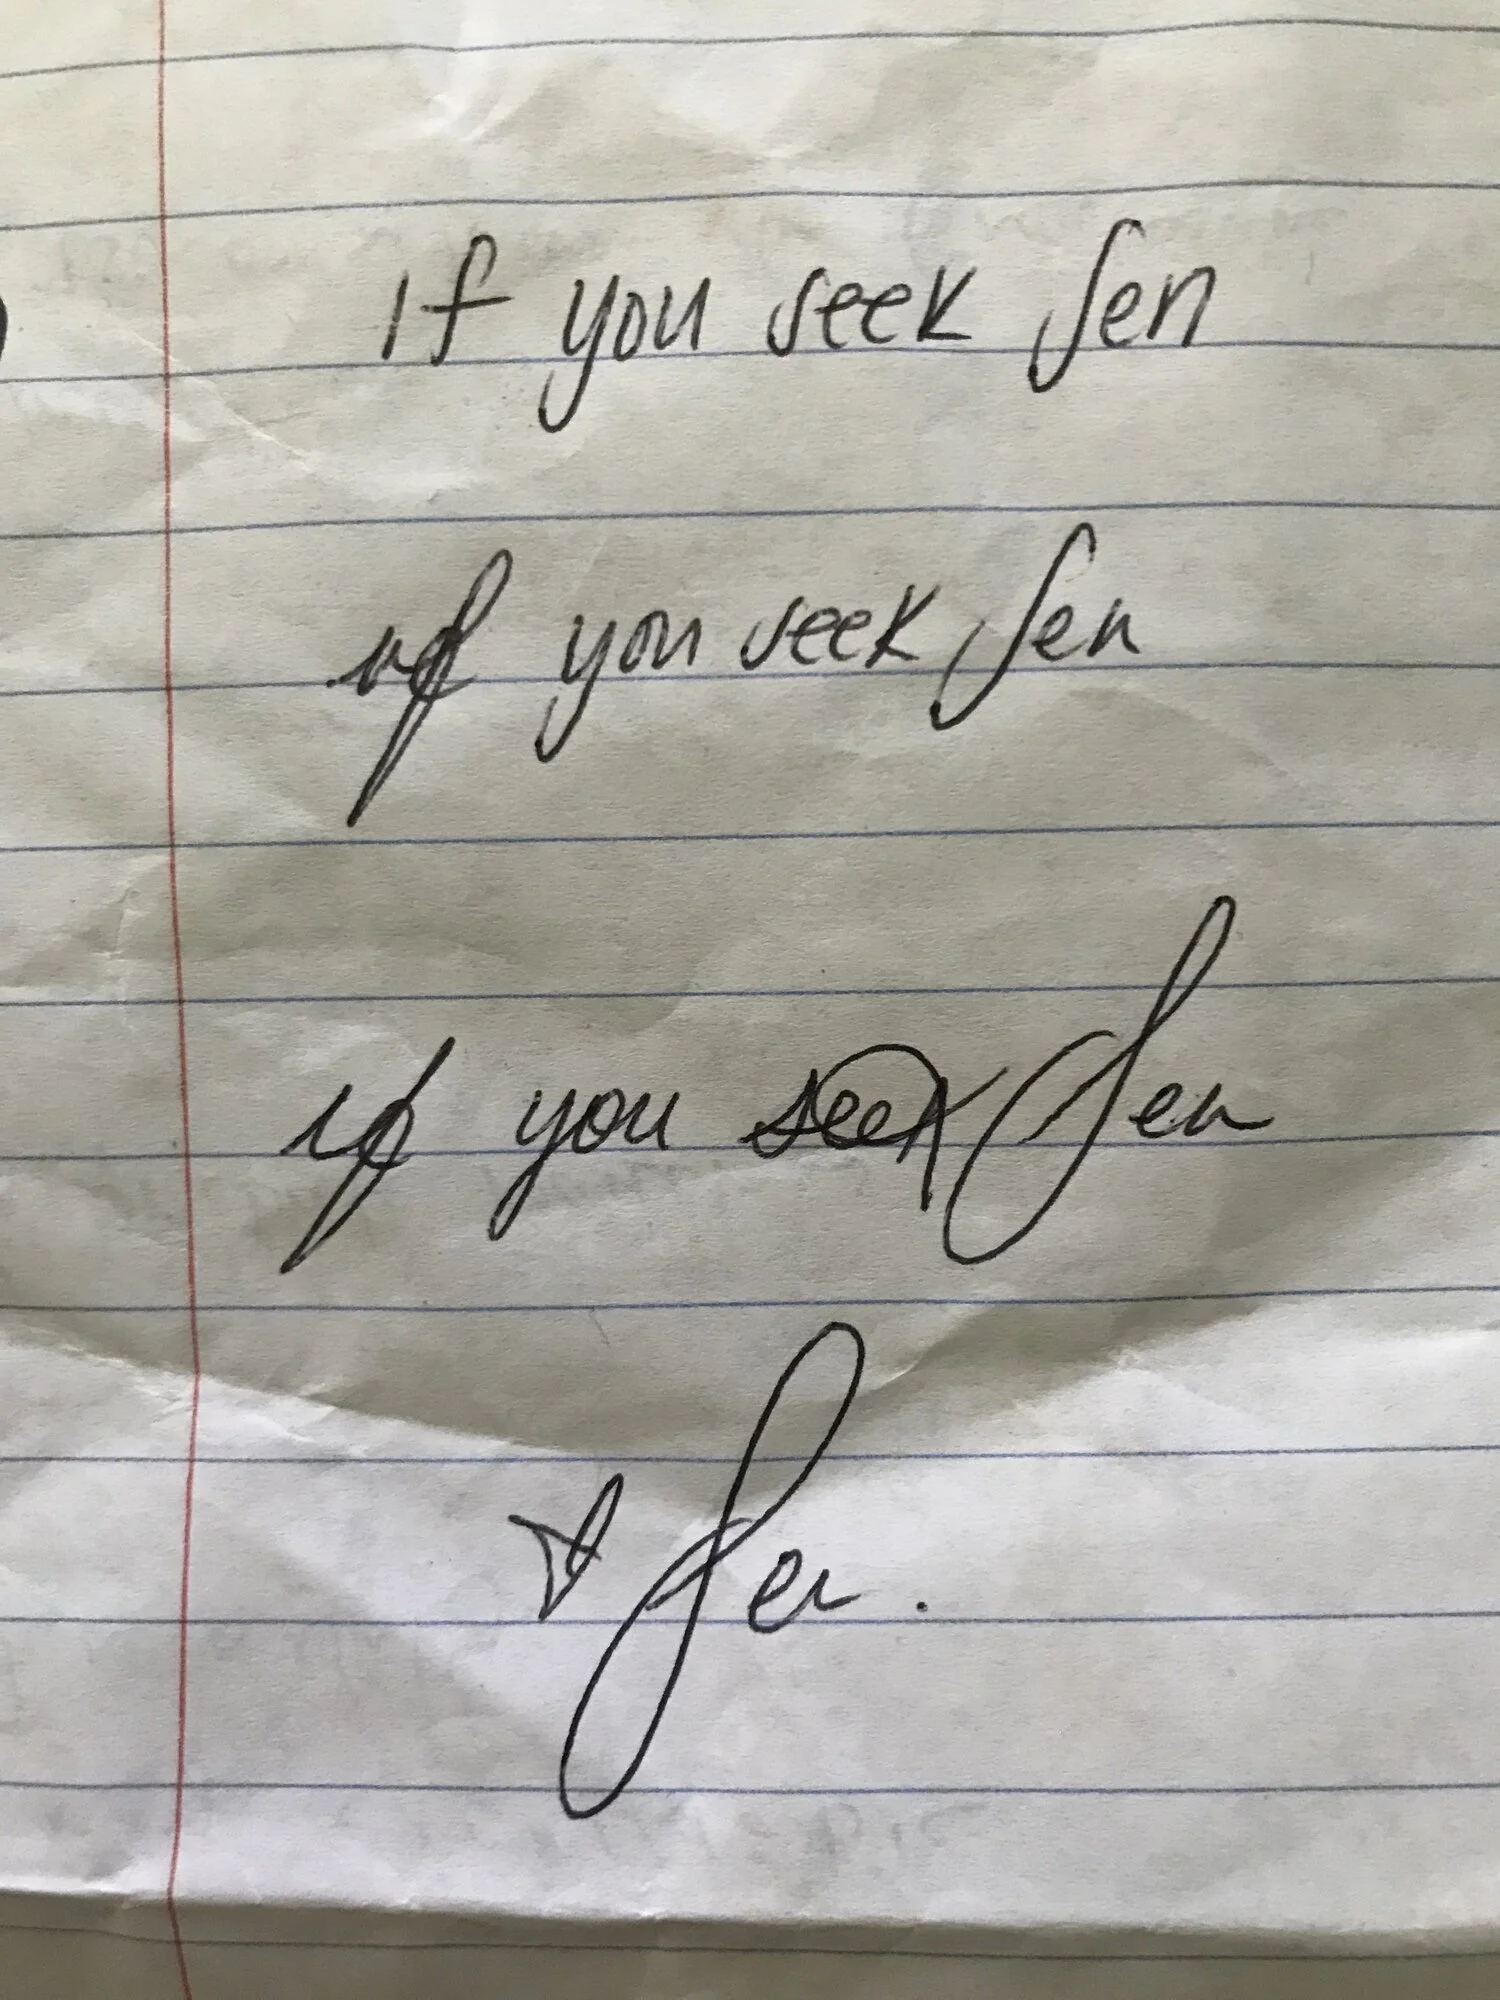 if you seek Jen
if you seek Jen
if you seek Jen
Jen.